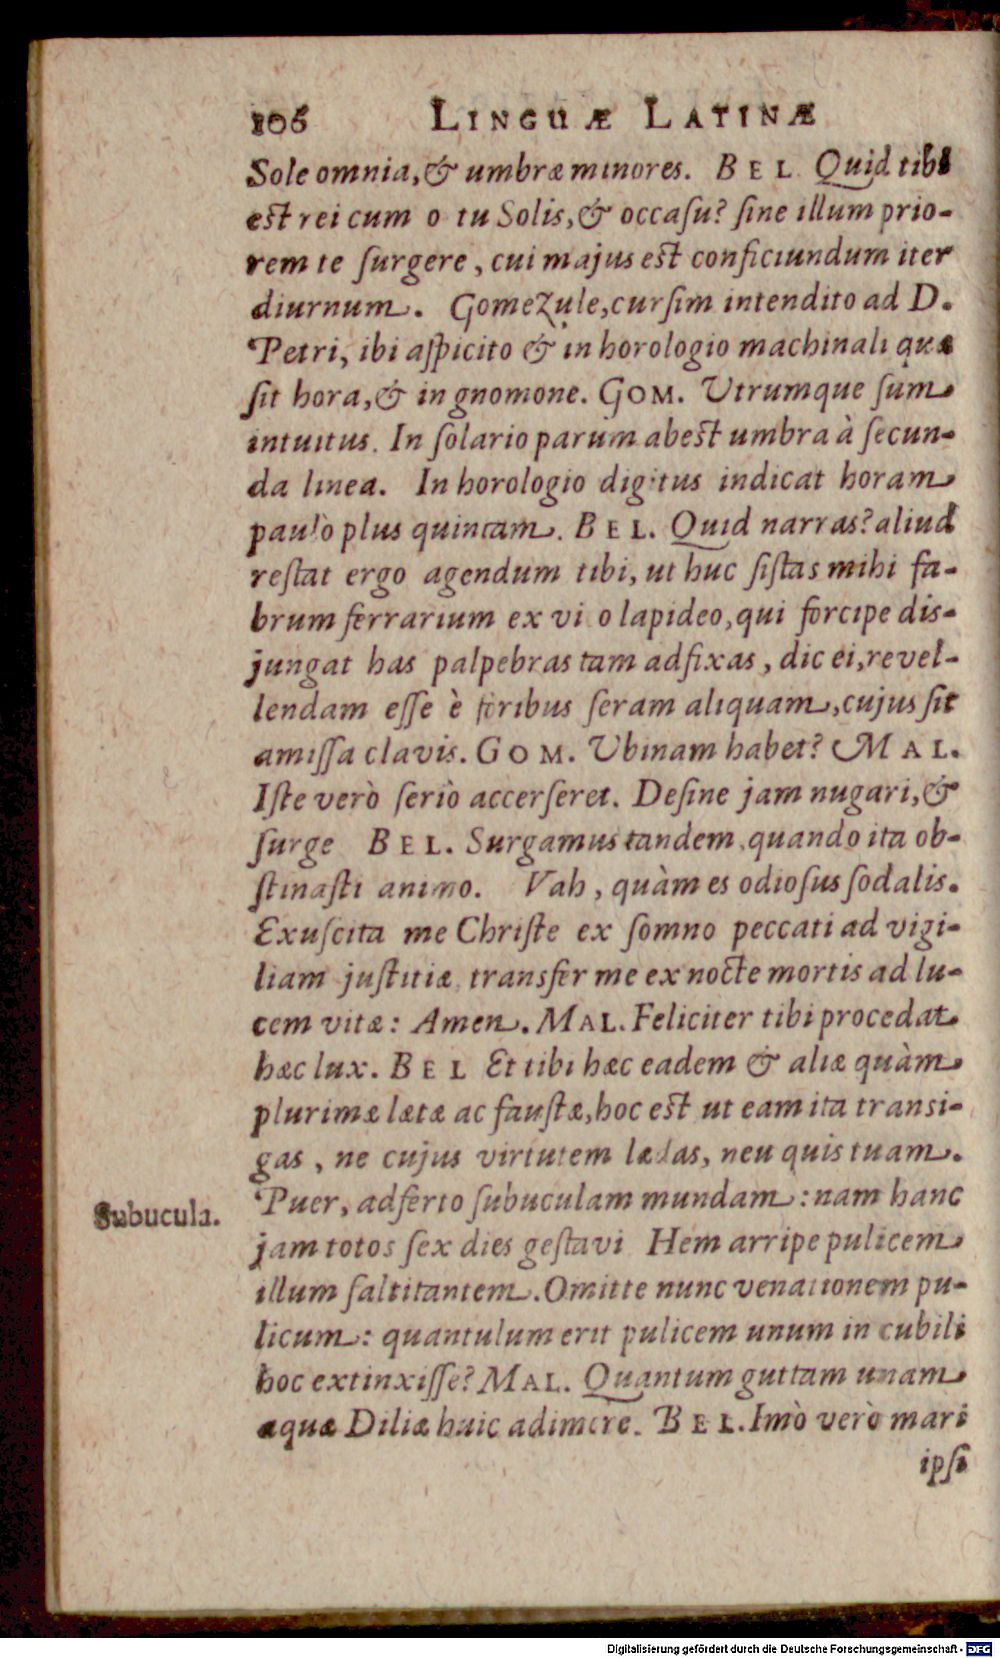 106 LINGUÆ LATINÆ
Sole omnia, & umbræ minores. BEL Quid tibi
eſt rei cum o tu Solis, & occaſu? ſine illum prio-
rem te ſurgere, cui majus eſt conficiundum iter
diurnum. Gomezule, curſim intendito ad D.
Petri, ibi aſpicito & in horologio machinali quæ
ſit hora, & in gnomone. GOM. Utrumque ſum
intuitus. In ſolario parum abeſt umbra à ſecun-
da linea. In horologio digitus indicat horam
paulò plus quintam. BEL. Quid narras? aliud
reſtat ergo agendum tibi, ut huc ſiſtas mihi fa-
brum ferrarium ex vi o lapideo, qui forcipe dis-
jungat has palpebras tam adfixas, dic ei, revel-
lendam eſſe è foribus ſeram aliquam, cujus ſit
amiſſa clavis. GOM. Ubinam habet? MAL.
Iſte verò ſeriò accerſeret. Deſine jam nugari, &
ſurge BEL. Surgamus tandem, quando ita ob-
ſtinaſti animo. Vah, quàm es odioſus ſodalis.
Exuſcita me Chriſte ex ſomno peccati ad vigi-
liam juſtitiæ, transfer me ex nocte mortis ad lu-
cem vitæ: Amen. MAL. Feliciter tibi procedat
hæc lux. BEL Et tibi hæc eadem & aliæ quàm
plurimæ lætæ ac fauſtæ, hoc eſt ut eam ita transi-
gas, ne cujus virtutem lædas, neu quis tuam.
Subucula. Puer, adferto ſubuculam mundam: nam hanc
jam totos ſex dies geſtavi Hem arripe pulicem
illum ſaltitantem. Omitte nunc venationem pu-
licum: quantulum erit pulicem unum in cubili
hoc extinxiſſe? MAL. Quantum guttam unam
aquæ Diliæ huic adimere. BEL. Imò verò mari
ipſi
Digitalisierung gefördert durch die Deutsche Forschungsgemeinschaft - DFG